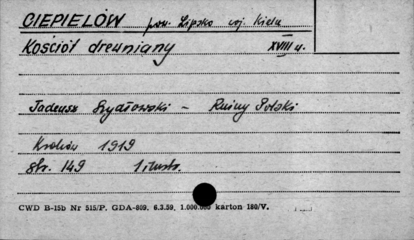 CIEPIELÓW pow. Lipsko woj. Kiel.
Kościół drewniany XVIII w.
Tadeusz Szydłowski - Ruiny Polski
Kraków 1919
str. 149 1 ilustr.
CWD B-15b Nr 515/P. GDA-809. 6.3.59. 1.000.000 karton 180/V.